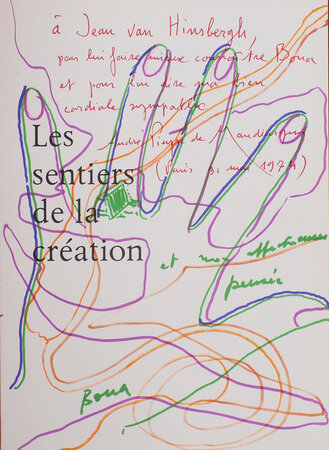 à Jean van Hinsbergh,
pour lui faire mieux connaître Bona
et pour lui dire ma bien
cordiale sympathie
André Pieyre de Mandiargues
(Paris 31 mai 1974)
Les
sentiers
de la
création
et mes affectueuses
pensées
Bona